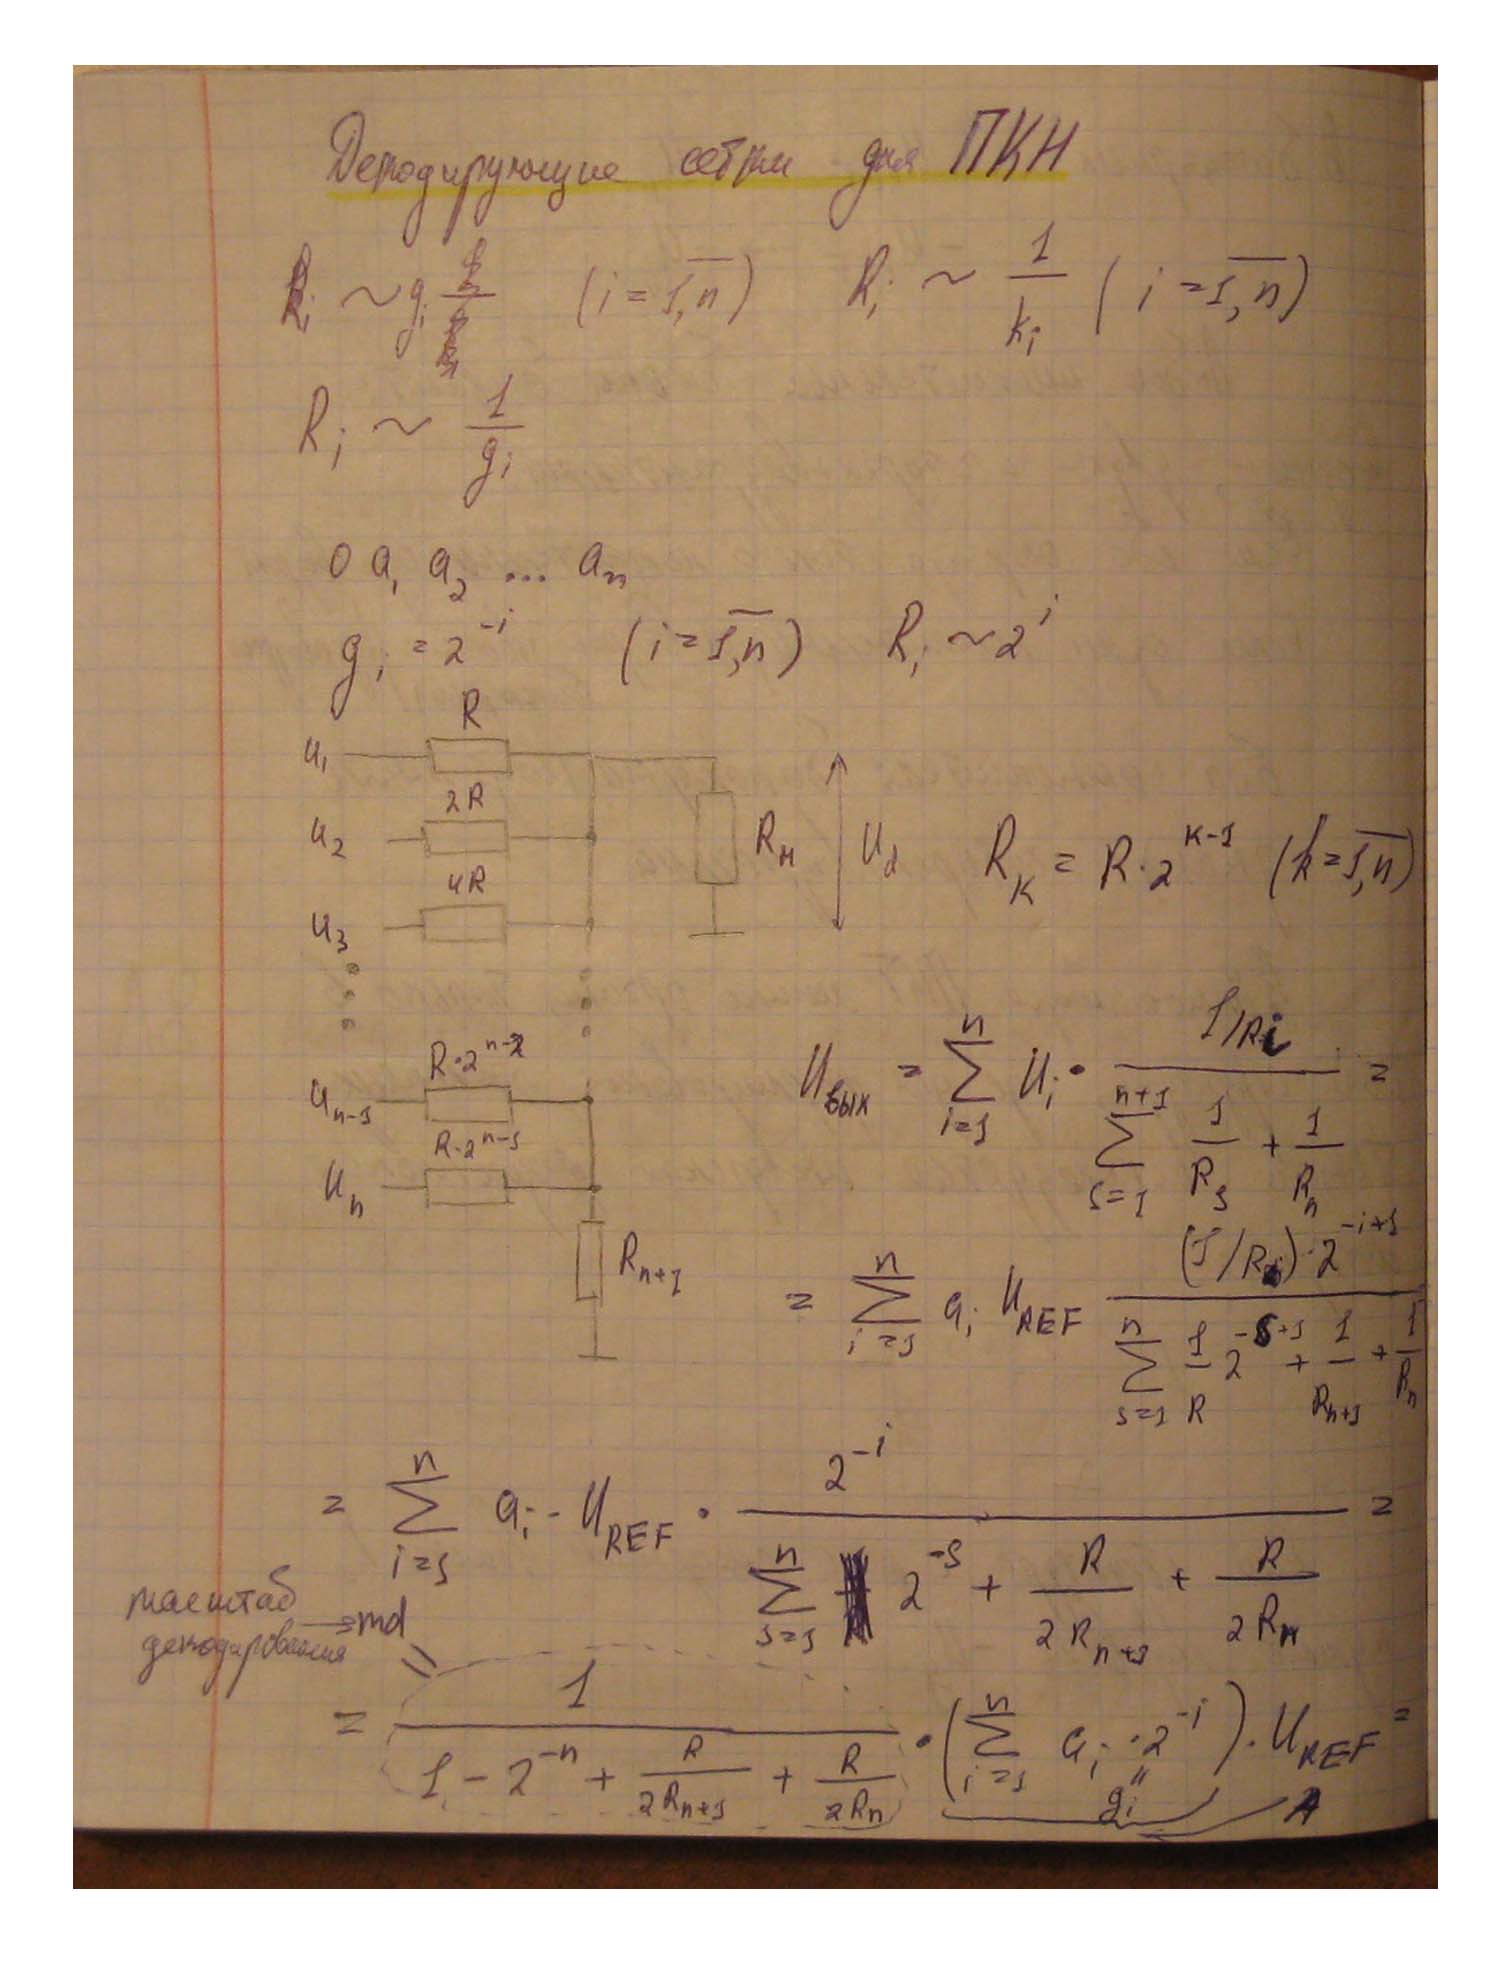 Декодирующие сетки для ПКН
R_i ~ g_i (i = 1,n̅) R_i ~ 1/k_i (i = 1,n̅)
R_i ~ 1/g_i
0 a_1 a_2 ... a_n
g_i = 2^{-i} (i = 1,n̅) R_i ~ 2^i
R
U_1
2R
U_2 R_н U_d R_k = R · 2^{k-1} (k = 1,n̅)
4R
U_3
R·2^{n-2}
U_{n-1}
R·2^{n-1}
U_n
U_вых = ∑_{i=1}^{n} U_i · (1/R_i) / (∑_{s=1}^{n+1} 1/R_s + 1/R_н) =
R_{n+1}
= ∑_{i=1}^{n} a_i U_REF ((1/R)·2^{-i+1}) / (∑_{s=1}^{n} 1/R 2^{-s+1} + 1/R_{n+1} + 1/R_н)
= ∑_{i=1}^{n} a_i · U_REF · 2^{-i} / (∑_{s=1}^{n} 2^{-s} + R/(2R_{n+1}) + R/(2R_н)) =
масштаб
декодирования → md
=
= 1 / (1 - 2^{-n} + R/(2R_{n+1}) + R/(2R_н)) · (∑_{i=1}^{n} a_i · 2^{-i}) · U_REF =
"
g_i A